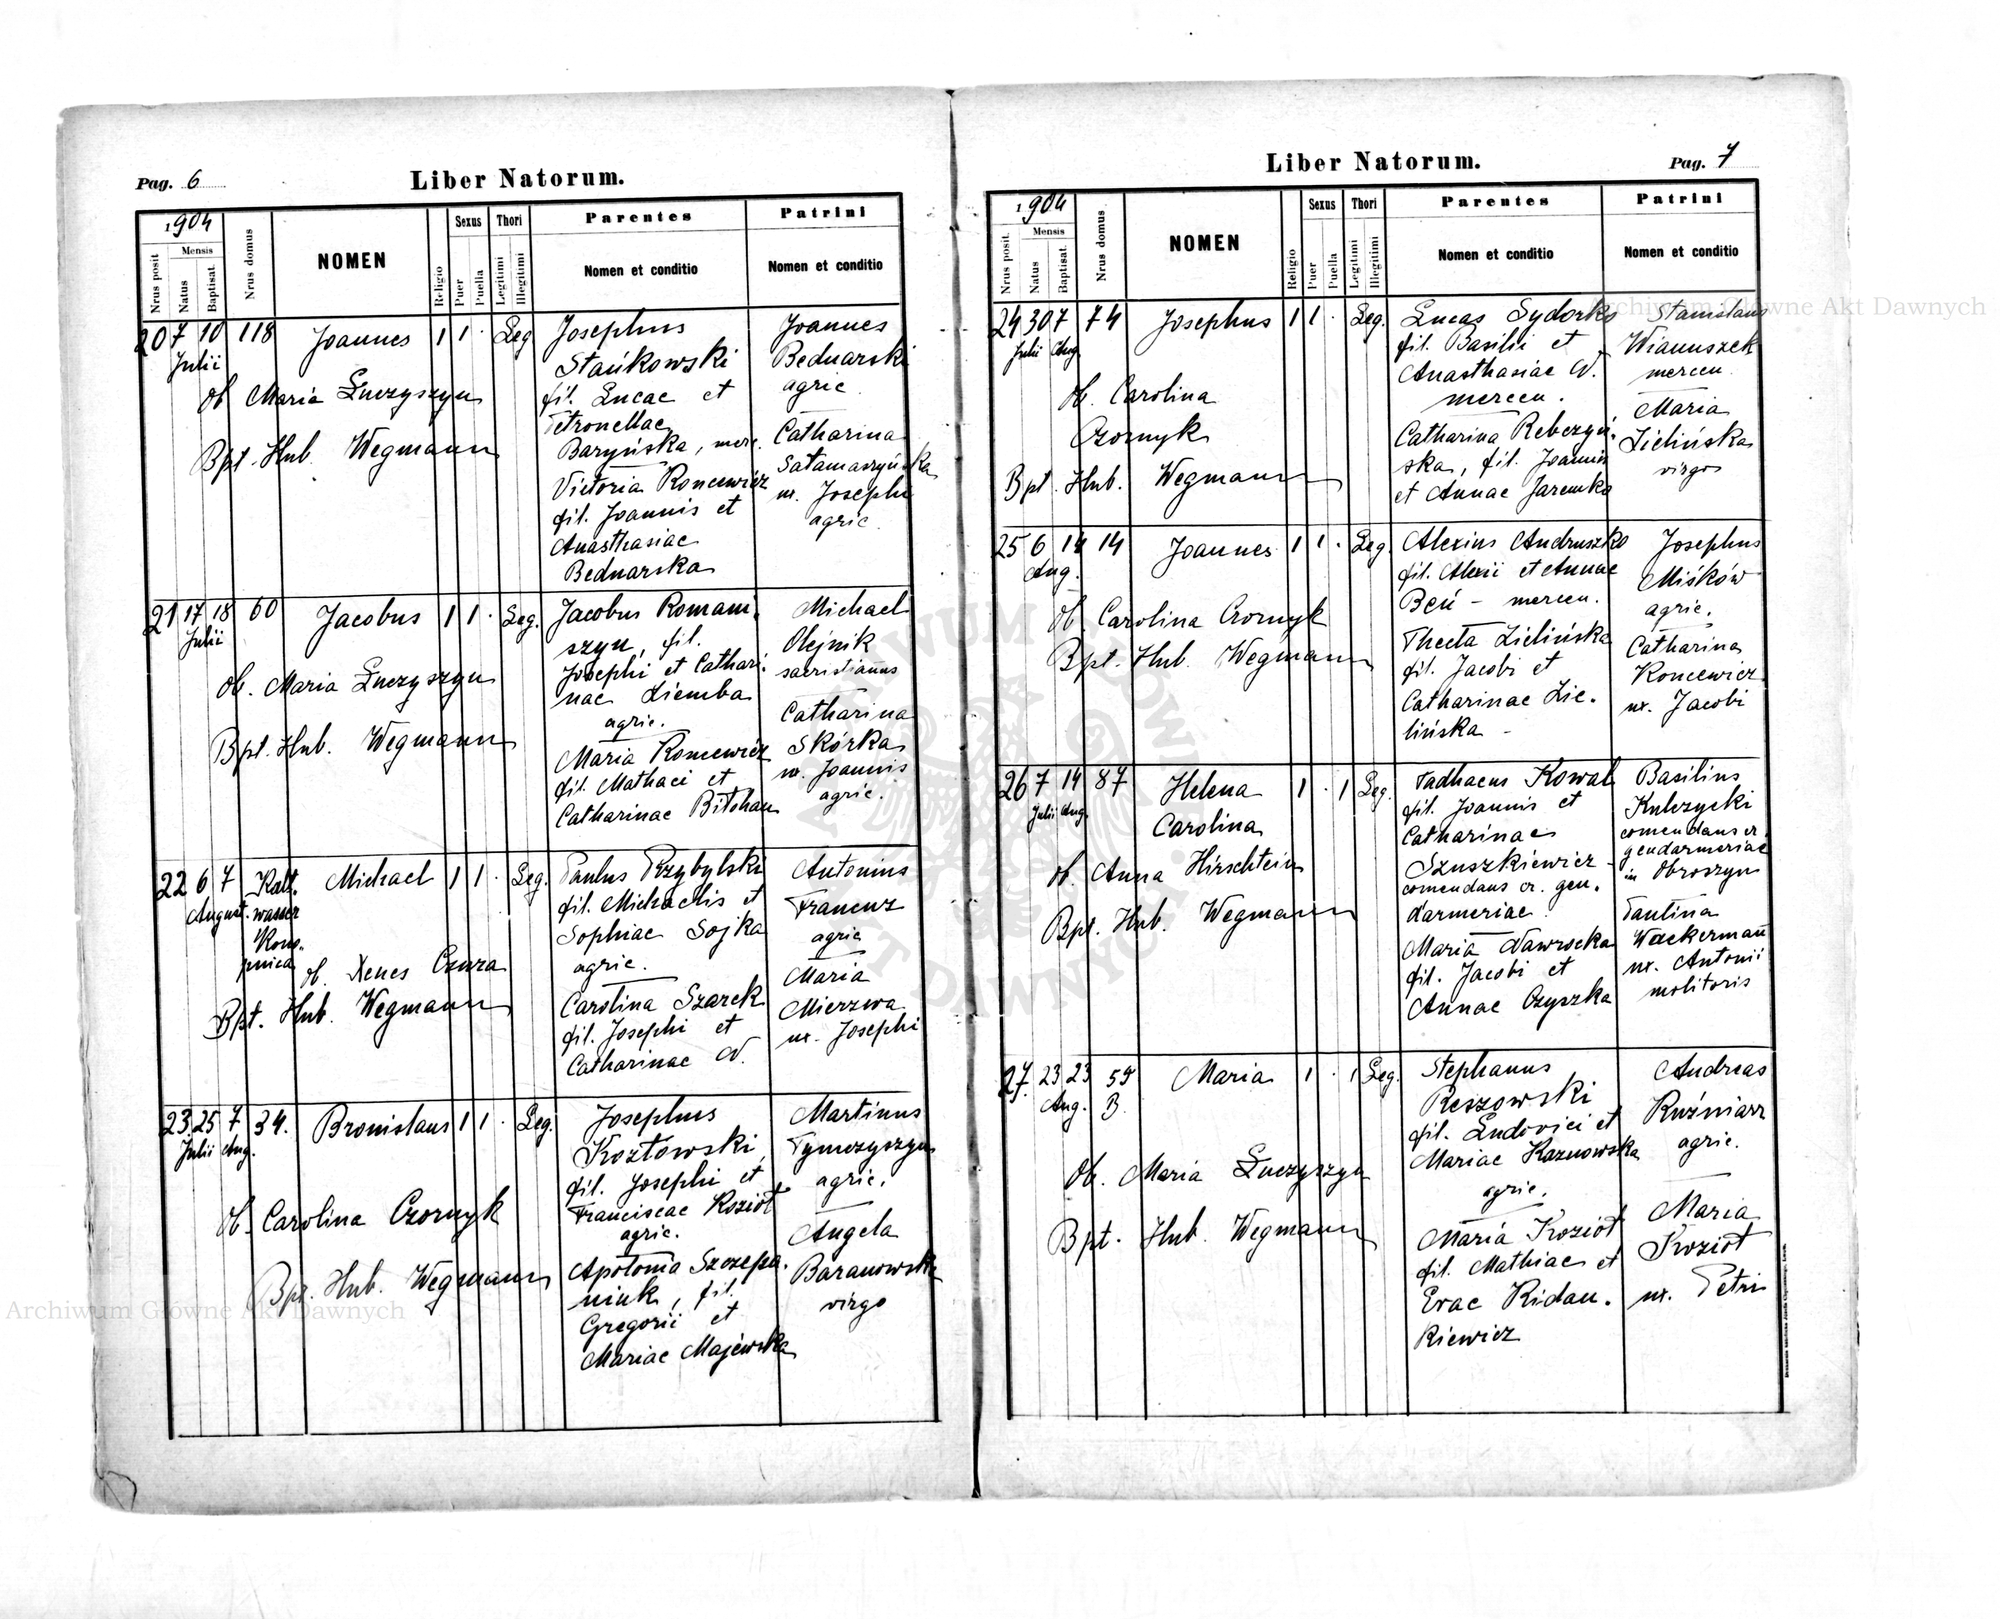 Pag. 6
Liber Natorum.
1904
Nrus posit
Mensis
Natus
Baptisat.
Nrus domus
NOMEN
Religio
Sexus
Puer
Puella
Thori
Legitimi
Illegitimi
Parentes
Nomen et conditio
Patrini
Nomen et conditio
20 7 10 118 Joannes 1 1 · Leg
Julii
Ob Maria Łuczyszyn
Bpt. Hub. Wegmann
Josephus
Stańkowski
fil. Lucae et
Petronellae
Baryńska, merc.
Victoria Roncewicz
fil. Joannis et
Anasthasiae
Bednarska
Joannes
Bednarski
agric.
Catharina
Sałamaszyńska
ux. Josephi
agric.
21 17 18 60 Jacobus 1 1 · Leg.
Julii
Ob. Maria Łuczyszyn
Bpt. Hub. Wegmann
Jacobus Romani-
szyn, fil.
Josephi et Cathari-
nae Ziemba
agric.
Maria Roncewicz
fil. Mathaei et
Catharinae Bitohan
Michael
Olejnik
sacristianus
Catharina
Skórka
ux. Joannis
agric.
22 6 7 Kalt- Michael 1 1 · Leg.
August. wasser
Kono-
pnica
Ob. Xenes Czwra
Bpt. Hub. Wegmann
Paulus Przybylski
fil. Michaelis et
Sophiae Sojka
agric.
Carolina Szarek
fil. Josephi et
Catharinae N.
Antonius
Francuz
agric
Maria
Mierzwa
ux. Josephi
23 25 7 34. Bronislaus 1 1 · Leg.
Julii Aug.
Ob. Carolina Czornyk
Bpt. Hub. Wegmann
Josephus
Kozłowski,
fil. Josephi et
Franciscae Kozioł
agric.
Apolonia Szczepa-
niuk, fil.
Gregorii et
Mariae Majewska
Martinus
Tymczyszyn
agric.
Angela
Baranowska
virgo
Pag. 7
Liber Natorum.
1904
Nrus posit.
Mensis
Natus
Baptisat.
Nrus domus
NOMEN
Religio
Sexus
Puer
Puella
Thori
Legitimi
Illegitimi
Parentes
Nomen et conditio
Patrini
Nomen et conditio
24 30 7 74 Josephus 1 1 · Leg.
Julii Aug.
Ob. Carolina
Czornyk
Bpt. Hub. Wegmann
Lucas Sydorko
fil. Basilii et
Anasthasiae N.
mercen.
Catharina Rebczyń-
ska, fil. Joannis
et Annae Jaremko
Stanislaus
Wianuszek
mercen.
Maria
Zielińska
virgo
25 6 14 14 Joannes 1 1 · Leg.
Aug.
Ob. Carolina Czornyk
Bpt. Hub. Wegmann
Alexius Andruszko
fil. Alexii et Annae
Beń - mercen.
Thecla Zielińska
fil. Jacobi et
Catharinae Zie-
lińska -
Josephus
Miśków
agric.
Catharina
Roncewicz
ux. Jacobi
26 7 14 87 Helena 1 · 1 Leg.
Julii Aug.
Carolina
Ob. Anna Hirschtein
Bpt. Hub. Wegmann
Tadhaeus Kowal
fil. Joannis et
Catharinae
Szuszkiewicz -
comendans cr. gen-
darmeriae.
Maria Nawrocka
fil. Jacobi et
Annae Czyszka
Basilius
Kulczycki
comendans cr.
gendarmeriae
in Obroszyn
Paulina
Wackermann
ux. Antonii
molitoris
27. 23 23 59 Maria 1 · 1 Leg.
Aug. B.
Ob. Maria Łuczyszyn
Bpt. Hub. Wegmann
Stephanus
Reszowski
fil. Ludovici et
Mariae Kaznowska
agric.
Maria Kozioł
fil. Mathiae et
Evae Ridan-
kiewicz
Andreas
Kuźniarz
agric.
Maria
Kozioł
ux. Petri
Archiwum Główne Akt Dawnych
Archiwum Główne Akt Dawnych